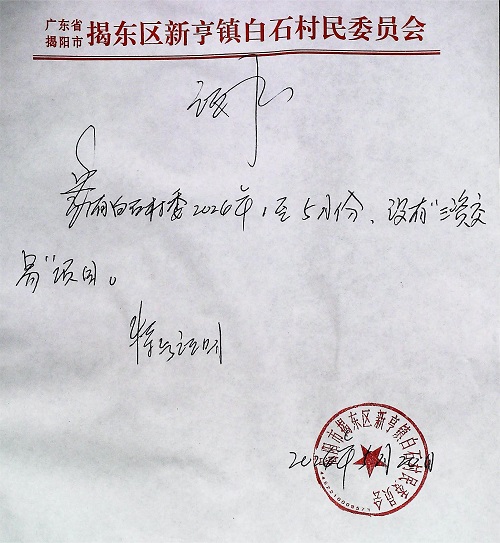 广东省
揭阳市 揭东区新亨镇白石村民委员会
证明
兹有白石村委2026年1至5月份、没有“三资交
易”项目。
特此证明
揭阳市揭东区新亨镇白石村民委员会
2026年5月20日